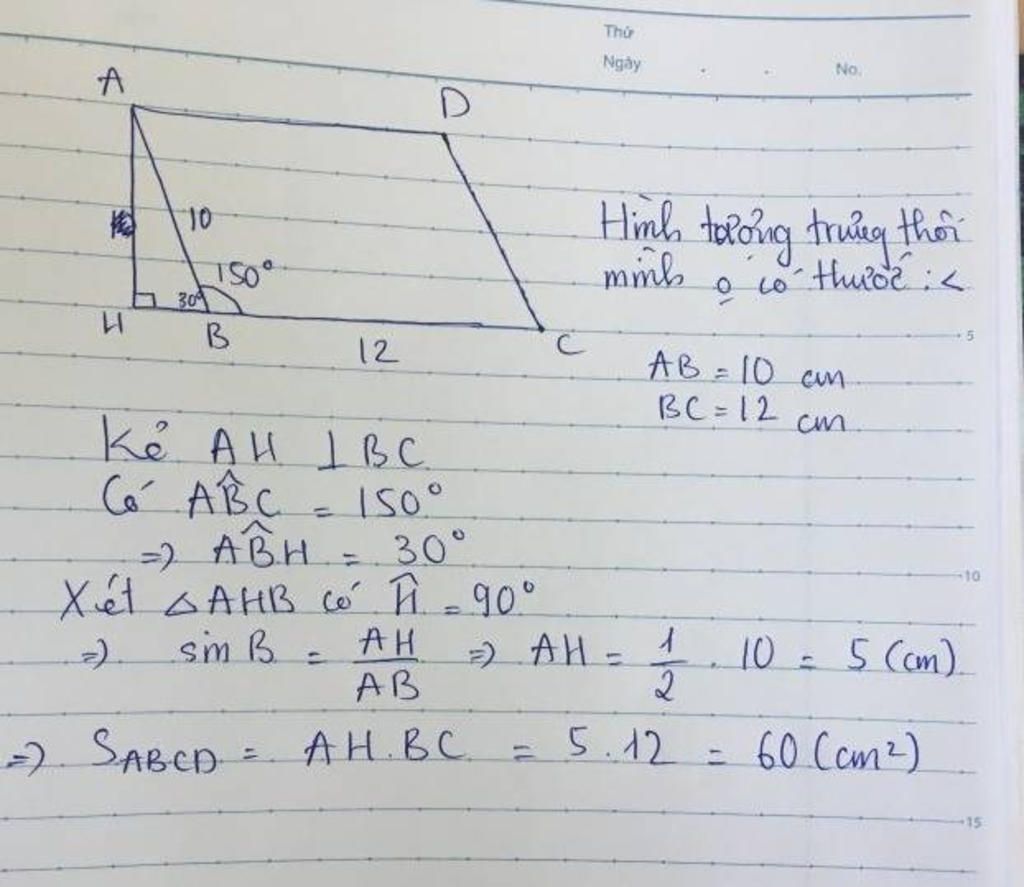 Thứ
Ngày . . No.
A
D
10
150°
30°
H
B
12
C
Hình tượng trưng thôi
mình o có thước :<
AB = 10 cm
BC = 12 cm
5
Kẻ AH ⊥ BC
Có AB̂C = 150°
=> AB̂H = 30°
10
Xét △AHB có Ĥ = 90°
=> sin B = AH/AB => AH = 1/2 . 10 = 5 (cm)
=> S_ABCD = AH.BC = 5.12 = 60 (cm²)
15